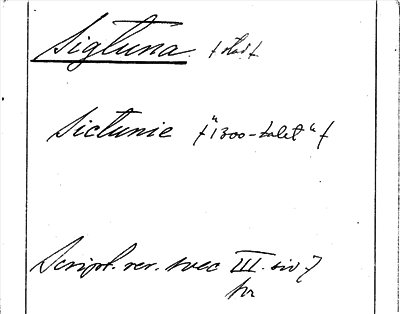 Sigtuna. /stad/.
Sictunie /"1300-talet"/
Script. rer. svec III. sid 7